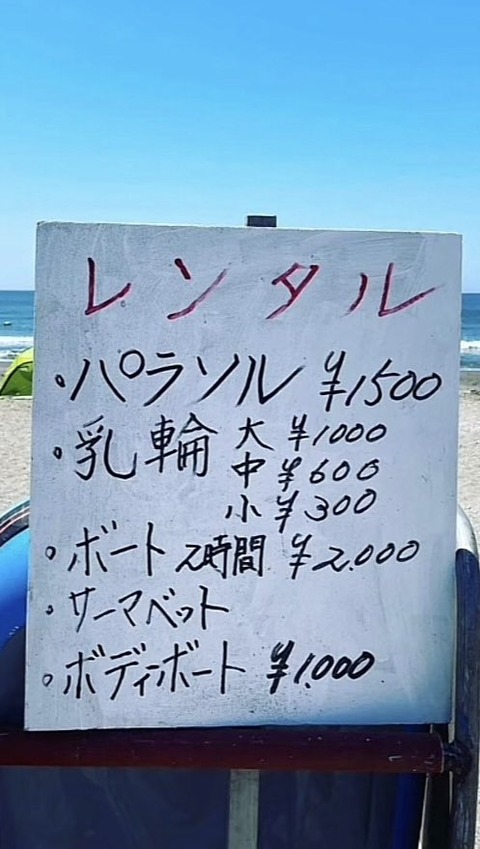 レンタル
・パラソル ¥1500
・乳輪 大 ¥1000
中 ¥600
小 ¥300
・ボート 2時間 ¥2.000
・サーマベット
・ボディーボート ¥1.000